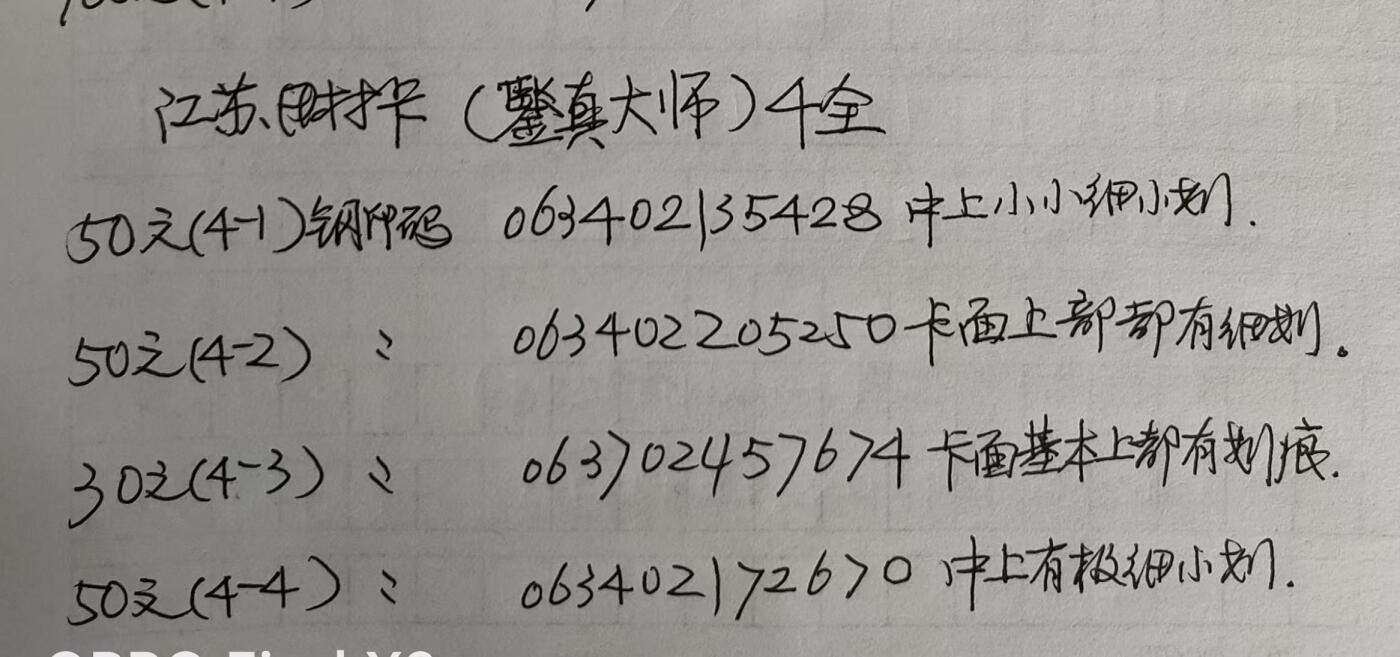 江苏田村卡(鑒真大师)4全
50元(4-1)钢印码 063402135428 中上小小细小划.
50元(4-2) : 063402205250 卡面上部都有细划。
30元(4-3) : 063702457674 卡面基本上都有划痕.
50元(4-4) : 0634021172670 中上有极细小划.